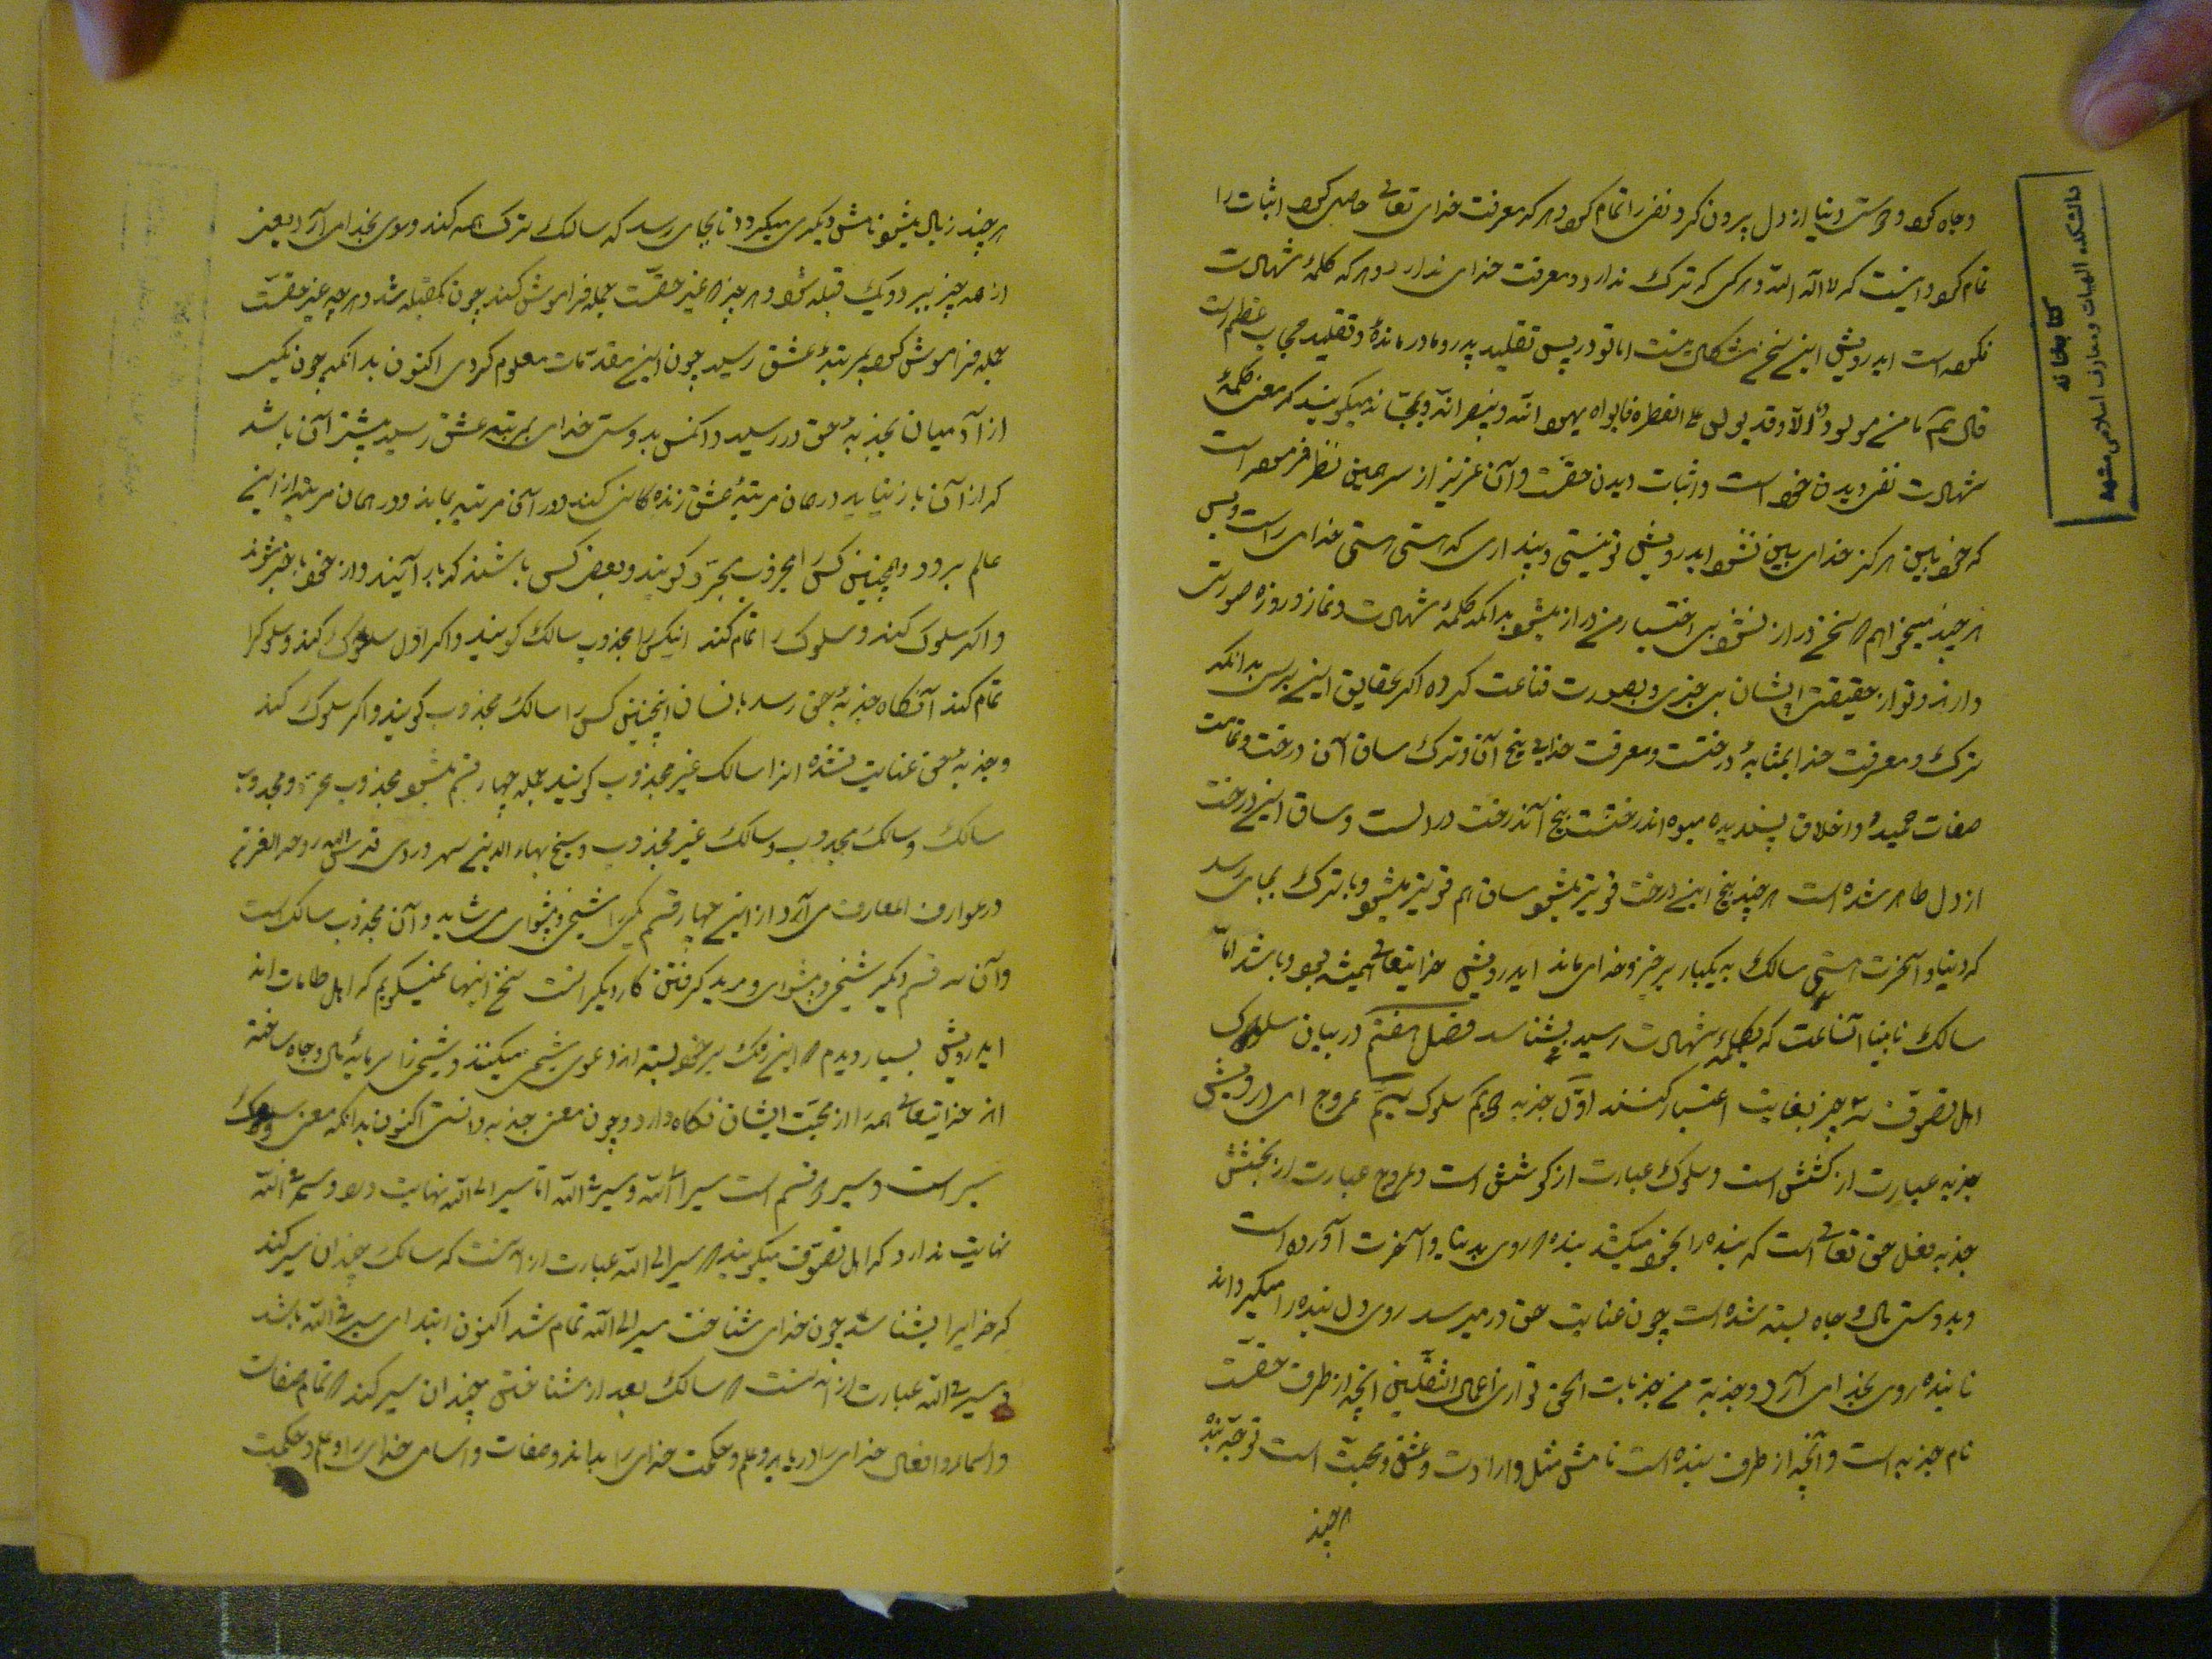 وجاه کرد و دوستی دنیا از دل بیرون کرد و نفی را تمام کرد و هر که معرفت خدای تعالی حاصل کرد اثبات را
تمام کرد و اینست که لا اله الا الله و هر کس که ترک ندارد و معرفت خدای ندارد و هر که کلمهٔ شهادت
نگفته است ایدرویش این سخن مشکل نیست اما تو در پس تقلید پدر و مادر ماندهٔ و تقلید حجاب عظیم است
قال ما من مولود الا وقد یولد علی الفطرة فابواه یهودانه وینصرانه ویمجسانه میگویند که معنی کلمهٔ
شهادت نفی دیدن خود است و اثبات دیدن حقست و آن عزیز از سر همین نظر فرموده است
که خود بین هرگز خدای بین نشود ایدرویش تو نیستی و پنداری که هستی هستی خدای راست و بس
هر چند میخواهم که سخن دراز نشود بی اختیار من دراز میشود بدانکه کلمهٔ شهادت و نماز و روزه صورتی
دارند و تو از حقیقت ایشان بی خبری و بصورت قناعت کرده اگر بحقایق این برسی بدانکه
ترک و معرفت خدا بمثابهٔ درختست و معرفت خدای بیخ آن و ترک ساق آن درخت و تمامت
صفات حمیده و اخلاق پسندیده میوه اندرختست بیخ آندرخت در دلست و ساق این درخت
از دل ظاهر شده است هر چند بیخ این درخت قوی‌تر میشود ساق هم قوی‌تر میشود و با ترک بجای رسد
که دنیا و آخرت هستی سالک به یکبار برخیزد و خدای ماند ایدرویش خدایتعالی همیشه بود و باشد اما
سالک نابینا آنساعت که بکلمهٔ شهادت رسید بشناسد فصل هفتم در بیان سلوک
اهل تصوف سه چیز بغایت اعتبار کنند اوّل جذبه دویم سلوک سیم عروج ای درویش
جذبه عبارت از کشش است و سلوک عبارت از کوشش است و عروج عبارت از بخشش
جذبه فعل حق تعالی است که بنده را بخود میکشد بنده که روی بدنیا و آخرت آورده است
و بدوستی مال و جاه بسته شده است چون عنایت حق در میرسد روی دل بنده را میگرداند
تا بنده روی بخدای آرد و جذبة من جذبات الحق توازی اعمال الثقلین آنچه از طرف حقست
نام جذبه است و آنچه از طرف بنده است نامش میل و ارادت و عشق و محبت است توجه بنده
هر چند
دانشکده الهیات و معارف اسلامی مشهد
کتابخانه
هر چند زیاد میشود نامش دیگری میگیرد تا بجای رسد که سالک ترک همه کند و روی بخدای آرد یعنی
از همه چیز ببرد و یک قبله شود و هر چیز که غیر حقست جمله فراموش کند چون یک قبله شد و هر چه غیر حقست
جمله فراموش کرد بمرتبهٔ عشق رسید چون این مقدمات معلوم کردی اکنون بدانکه چون یکی
از آدمیان بجذبهٔ حق در رسید و آنکس بدوستی خدای بمرتبه عشق رسید بیشتر آن باشد
که از آن باز نیاید در همان مرتبهٔ عشق زندگانی کند در آن مرتبه بماند و در همان مرتبه از این
عالم برود و اینچنین کس را مجذوب مجرد گویند و بعضی کس باشند که باز آیند و از خود با خبر شوند
و اگر سلوک کند و سلوک را تمام کند اینکس را مجذوب سالک گویند و اگر اول سلوک کند و سلوک را
تمام کند آنگاه جذبهٔ حق رسد بانسان اینچنین کس را سالک مجذوب گویند و اگر سلوک کند
و جذبهٔ حق عنایت نشده انرا سالک غیر مجذوب گویند جمله چهار قسم میشود مجذوب مجرد و مجذوب
سالک و سالک مجذوب و سالک غیر مجذوب و شیخ بهاء الدین سهروردی قدس الله روحه العزیز
در عوارف المعارف می آرد از این چهار قسم یکی را شیخی و پیشوای می شاید و آن مجذوب سالک است
و آن سه قسم دیگر شیخی و پیشوای و مرید گرفتن کار دیگر است سخن اینها نمیگویم که اهل طامات اند
ایدرویش بسیار دیدم که این بر خود بسته اند دعوی شیخی میکنند و شیخی را سرمایهٔ مال و جاه ساخته
اند خدایتعالی همه را از محبت ایشان نگاه دارد و چون معنی جذبه دانستی اکنون بدانکه معنی سلوک
سیر است و سیر دو قسم است سیر الی الله و سیر فی الله اما سیر الی الله نهایت دارد و سیر فی الله
نهایت ندارد که اهل تصوف میگویند که سیر الی الله عبارت از آنست که سالک چندان سیر کند
که خدایرا بشناسد چون خدای شناخت سیر الی الله تمام شد اکنون ابتدای سیر فی الله باشد
سیر فی الله عبارت از آنست که سالک بعد از شناختن چندان سیر کند که تمام صفات
و اسماء و افعال خدای را دریابد و علم و حکمت خدای را بداند و صفات و اسامی خدای را و علم و حکمت